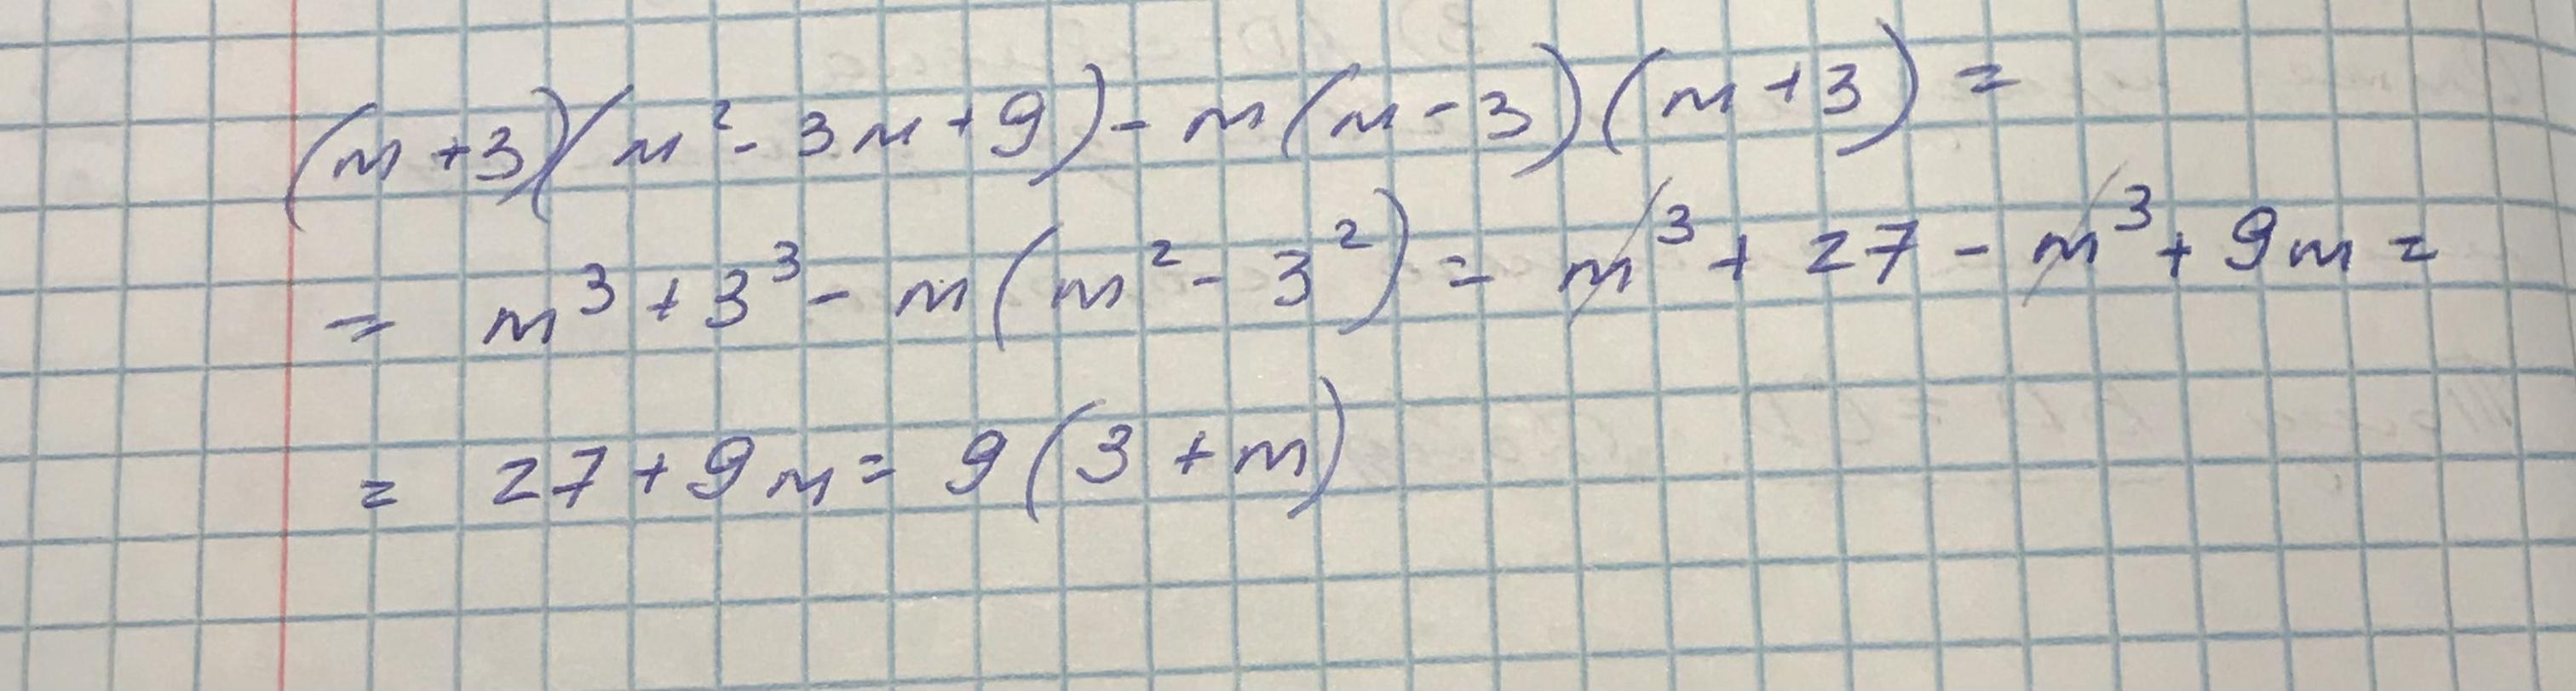 (m+3)(m²-3m+9)-m(m-3)(m+3)=
= m³+3³-m(m²-3²)=m³+27-m³+9m=
= 27+9m=9(3+m)